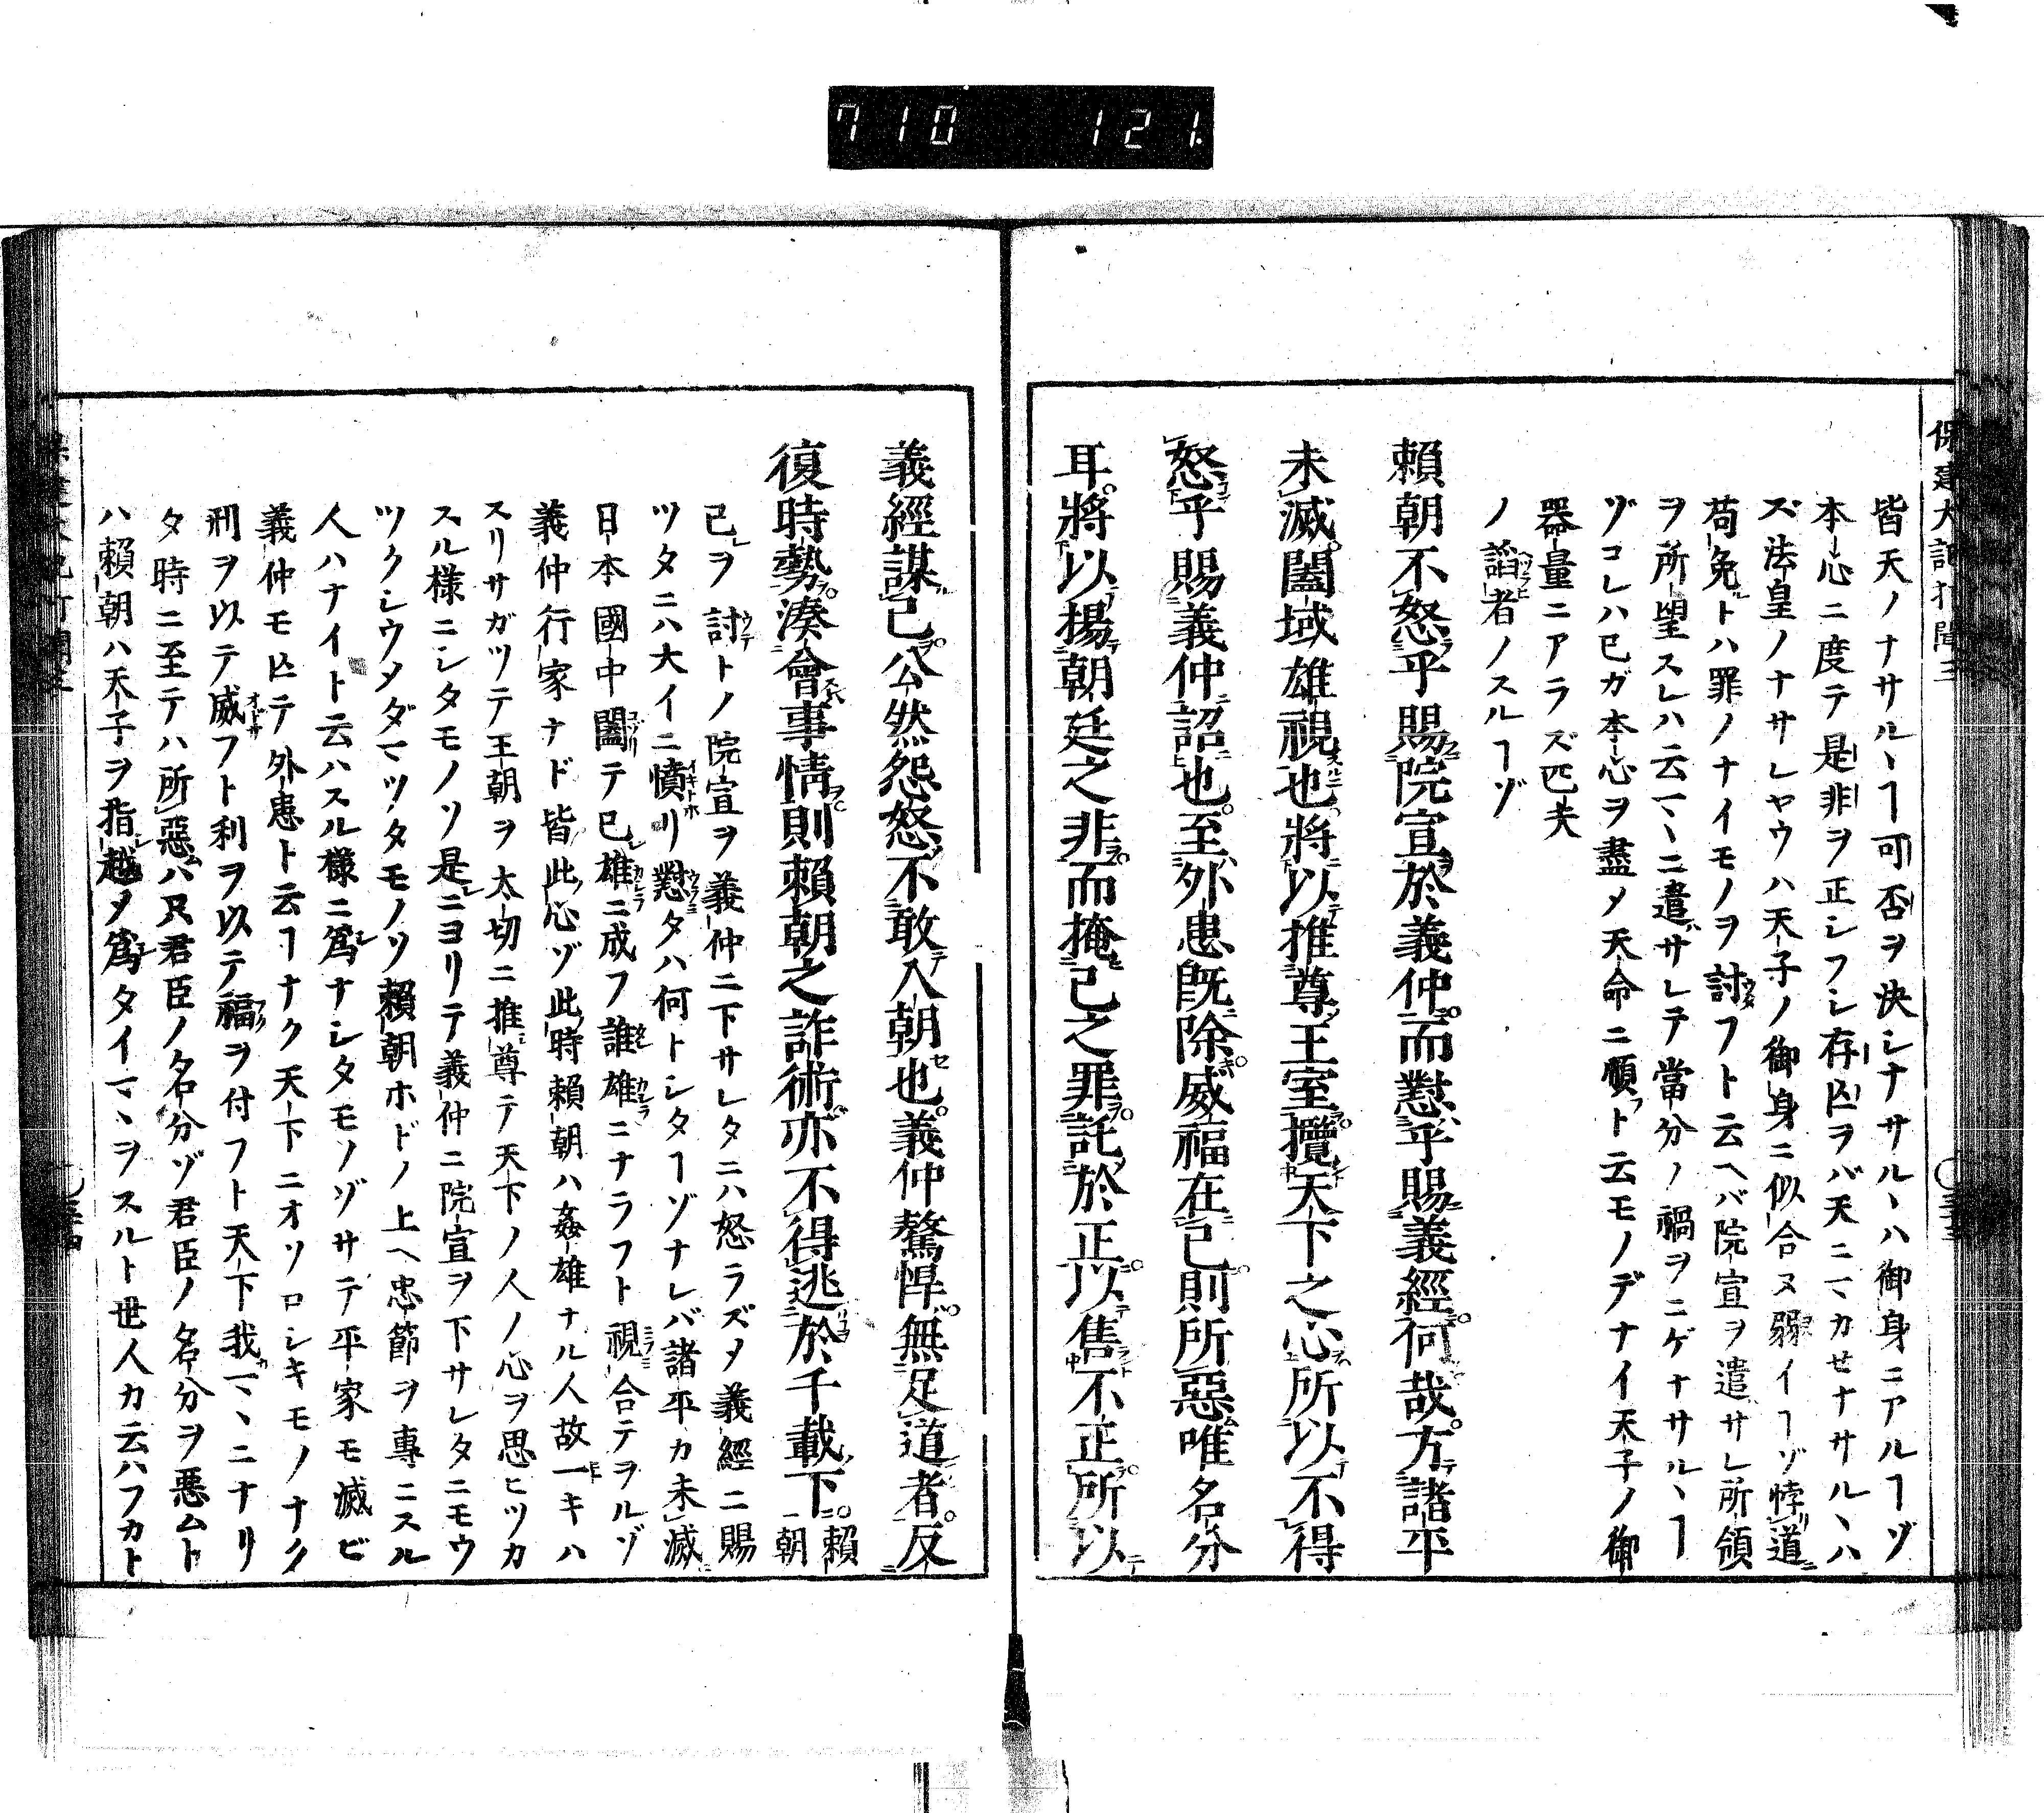 710 121.
保建大記打聞三
皆天ノナサルヽヿ可否ヲ決シナサルヽハ御身ニアルヿゾ
本心ニ度テ是非ヲ正シフシ存亡ヲバ天ニマカせナサルヽハ
ズ法皇ノナサレヤウハ天子ノ御身ニ似合ヌ弱イヿゾ悖道
苟免トハ罪ノナイモノヲ討フト云ヘバ院宣ヲ遣サレ所領
ヲ所望スレハ云マヽニ遣サレテ當分ノ禍ヲニゲナサルヽヿ
ゾコレハ已ガ本心ヲ盡メ天命ニ順ト云モノデナイ天子ノ御
器量ニアラズ匹夫
ノ謟者ノスルヿゾ
賴朝不怒乎賜院宣於義仲而懟乎賜義經何哉方諸平
未滅闔域雄視也將以推尊王室攬天下之心所以不得
怒乎賜義仲詔也至外患既除威福在已則所惡唯名分
耳將以揚朝廷之非而掩已之罪託於正以售不正所以
義經謀已公然怨怒不敢入朝也義仲驁悍無足道者反
復時勢湊會事情則賴朝之詐術亦不得逃於千載下 賴朝
已ヲ討トノ院宣ヲ義仲ニ下サレタニハ怒ラズメ義經ニ賜
ツタニハ大イニ憤リ懟タハ何トシタヿゾナレバ諸平カ未滅
日本國中闔テ已雄ニ成フ誰雄ニナラフト視合テヲルゾ
義仲行家ナド皆此心ゾ此時賴朝ハ姦雄ナル人故一キハ
スリサガツテ王朝ヲ太切ニ推尊テ天下ノ人ノ心ヲ思ヒツカ
スル樣ニシタモノソ是ニヨリテ義仲ニ院宣ヲ下サレタニモウ
ツクシウメダマツタモノソ賴朝ホドノ上ヘ忠節ヲ專ニスル
人ハナイト云ハスル樣ニ爲ナシタモノゾサテ平家モ滅ビ
義仲モ亡テ外患ト云ヿナク天下ニオソロシキモノナク
刑ヲ以テ威フト利ヲ以テ福ヲ付フト天下我マヽニナリ
タ時ニ至テハ所惡ハ只君臣ノ名分ゾ君臣ノ名分ヲ悪ムト
ハ賴朝ハ天子ヲ指越メ爲タイマヽヲスルト世人カ云ハフカト